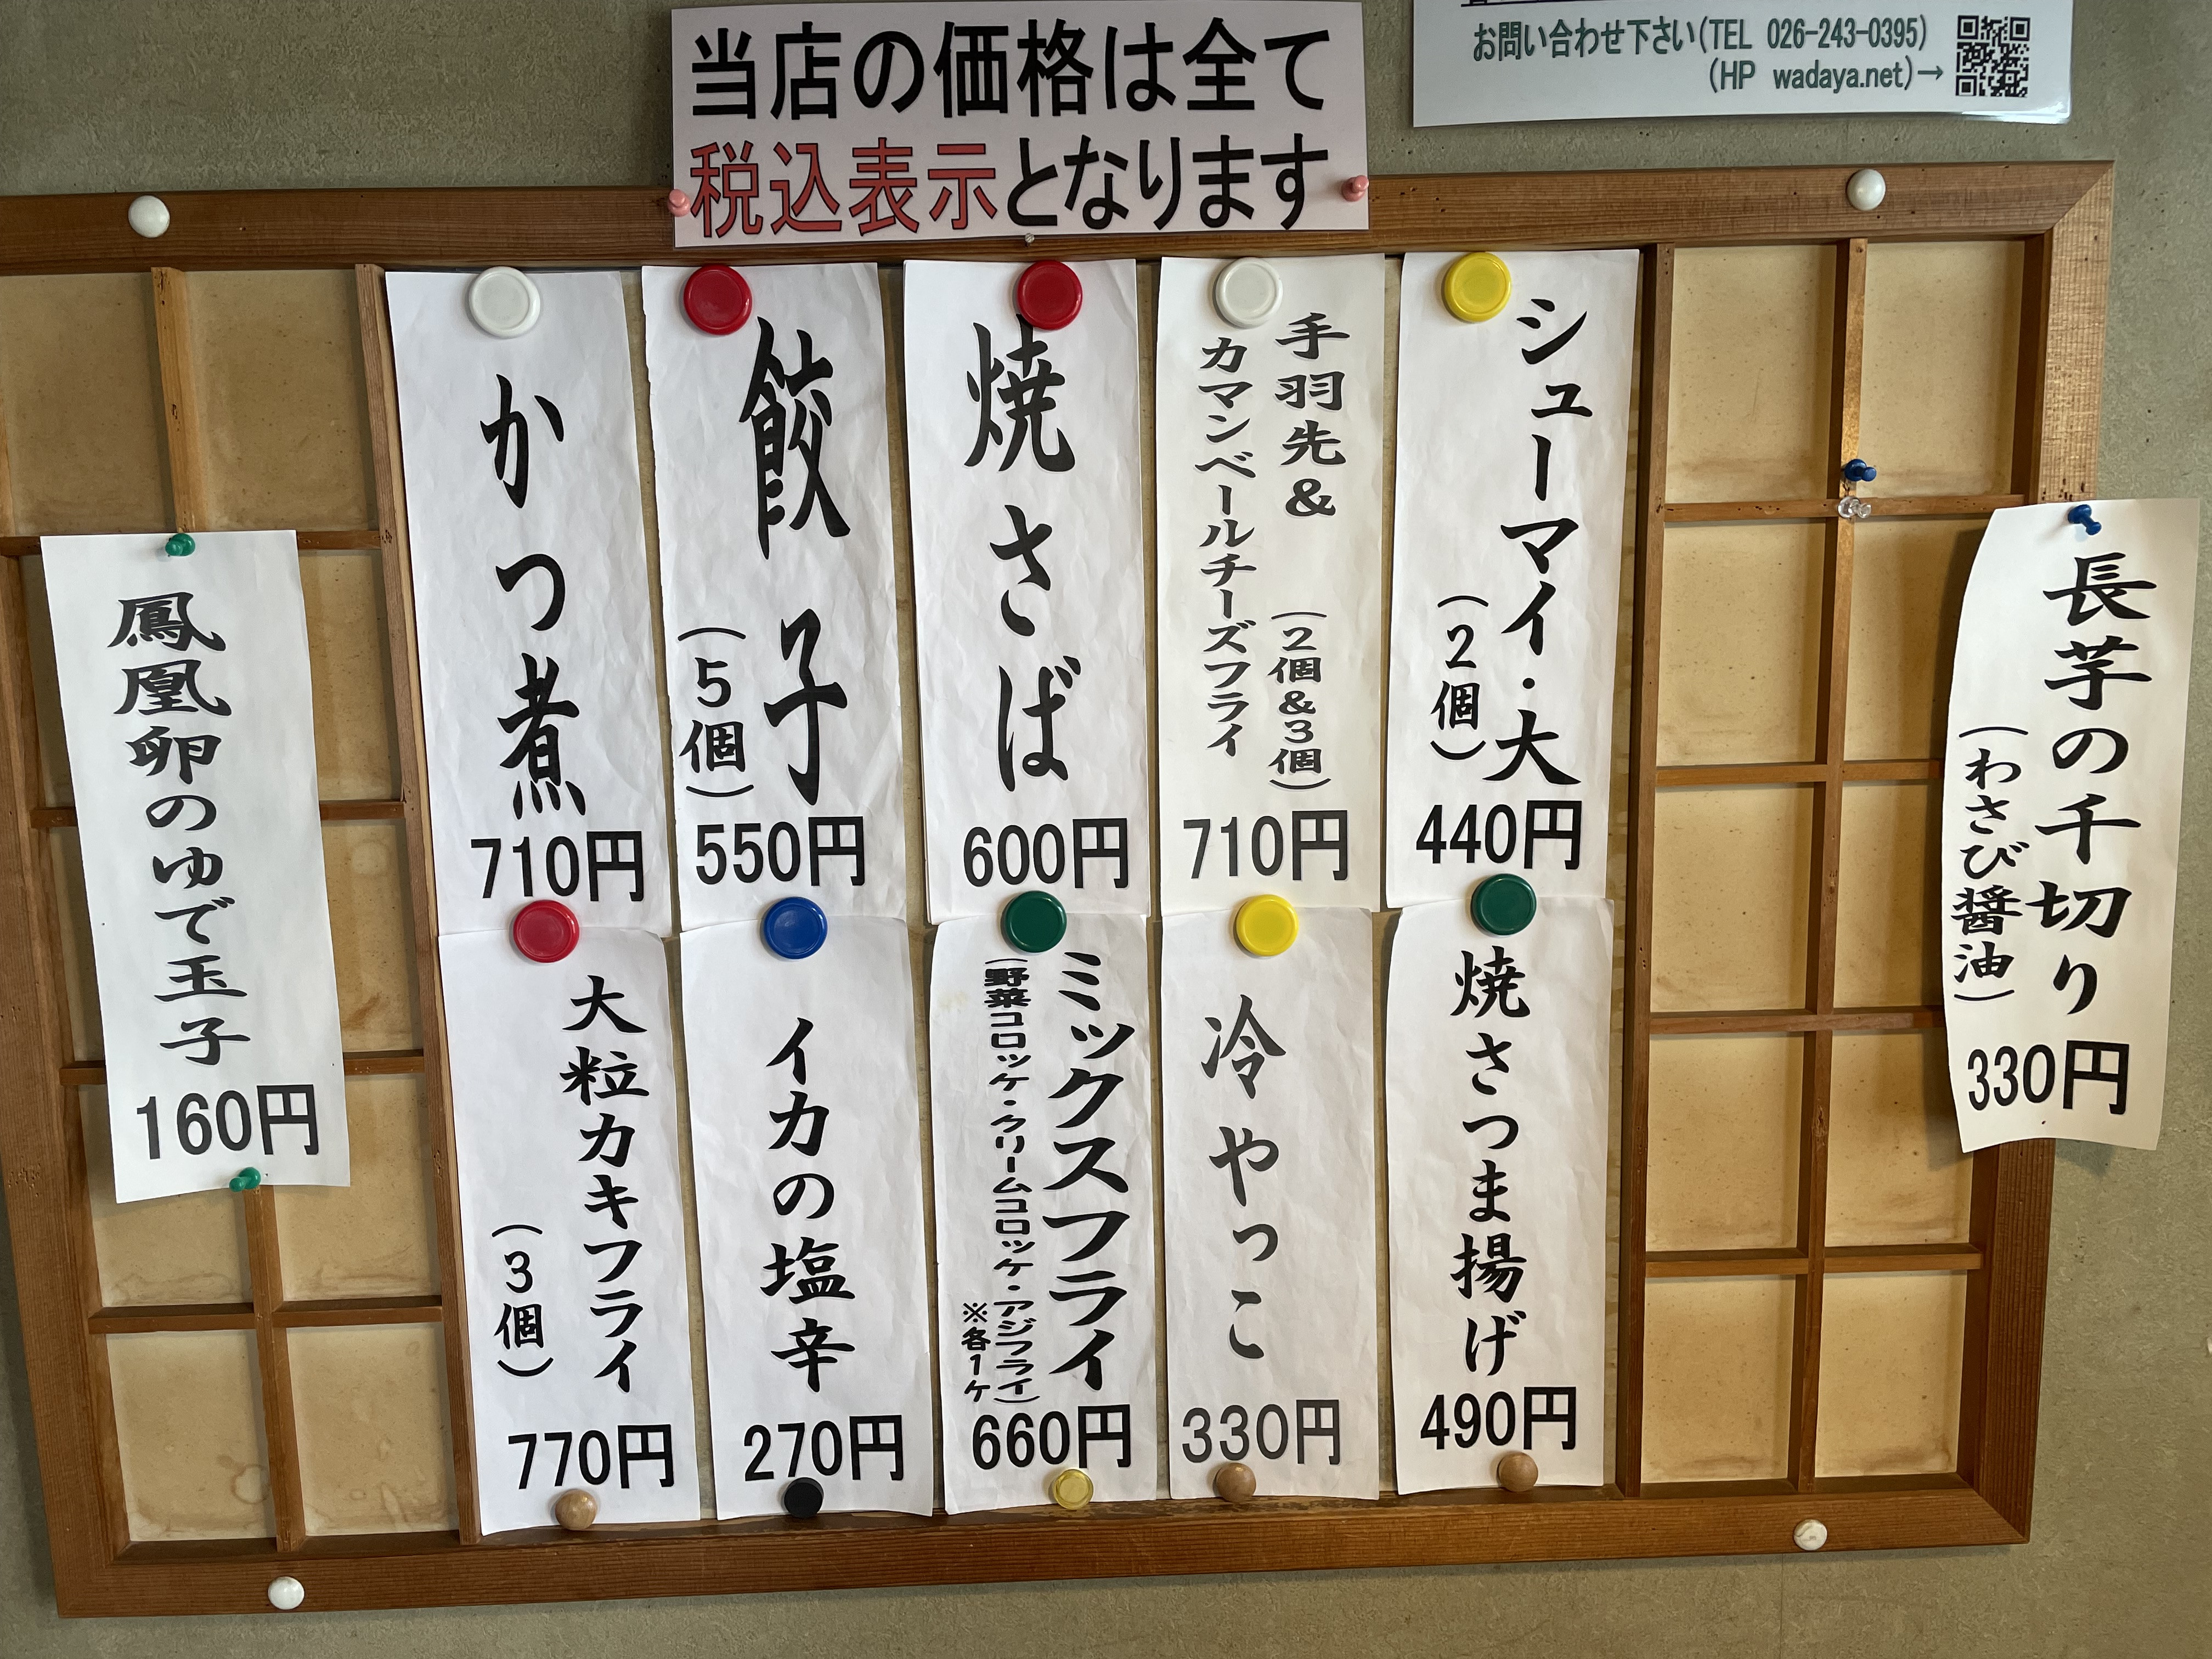 当店の価格は全て
税込表示となります
お問い合わせ下さい(TEL 026-243-0395)
(HP wadaya.net)→
長芋の千切り
(わさび醤油)
330円
シューマイ・大
(2個)
440円
手羽先&
カマンベールチーズフライ
(2個&3個)
710円
焼さば
600円
餃子
(5個)
550円
かつ煮
710円
焼さつま揚げ
490円
冷やっこ
330円
ミックスフライ
(野菜コロッケ・クリームコロッケ・アジフライ)
※各1ケ
660円
イカの塩辛
270円
大粒カキフライ
(3個)
770円
鳳凰卵のゆで玉子
160円